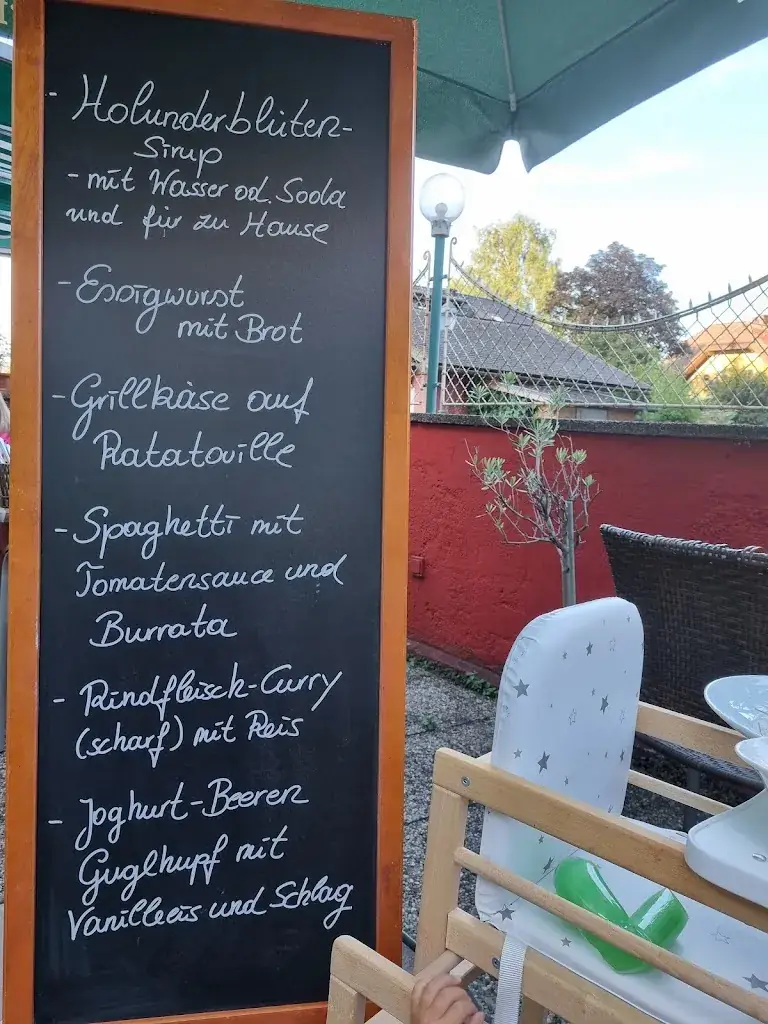 - Holunderblüten-
Sirup
- mit Wasser od. Soda
und für zu Hause
- Essigwurst
mit Brot
- Grillkäse auf
Ratatouille
- Spaghetti mit
Tomatensauce und
Burrata
- Rindfleisch-Curry
(scharf) mit Reis
- Joghurt-Beeren
Guglhupf mit
Vanilleeis und Schlag